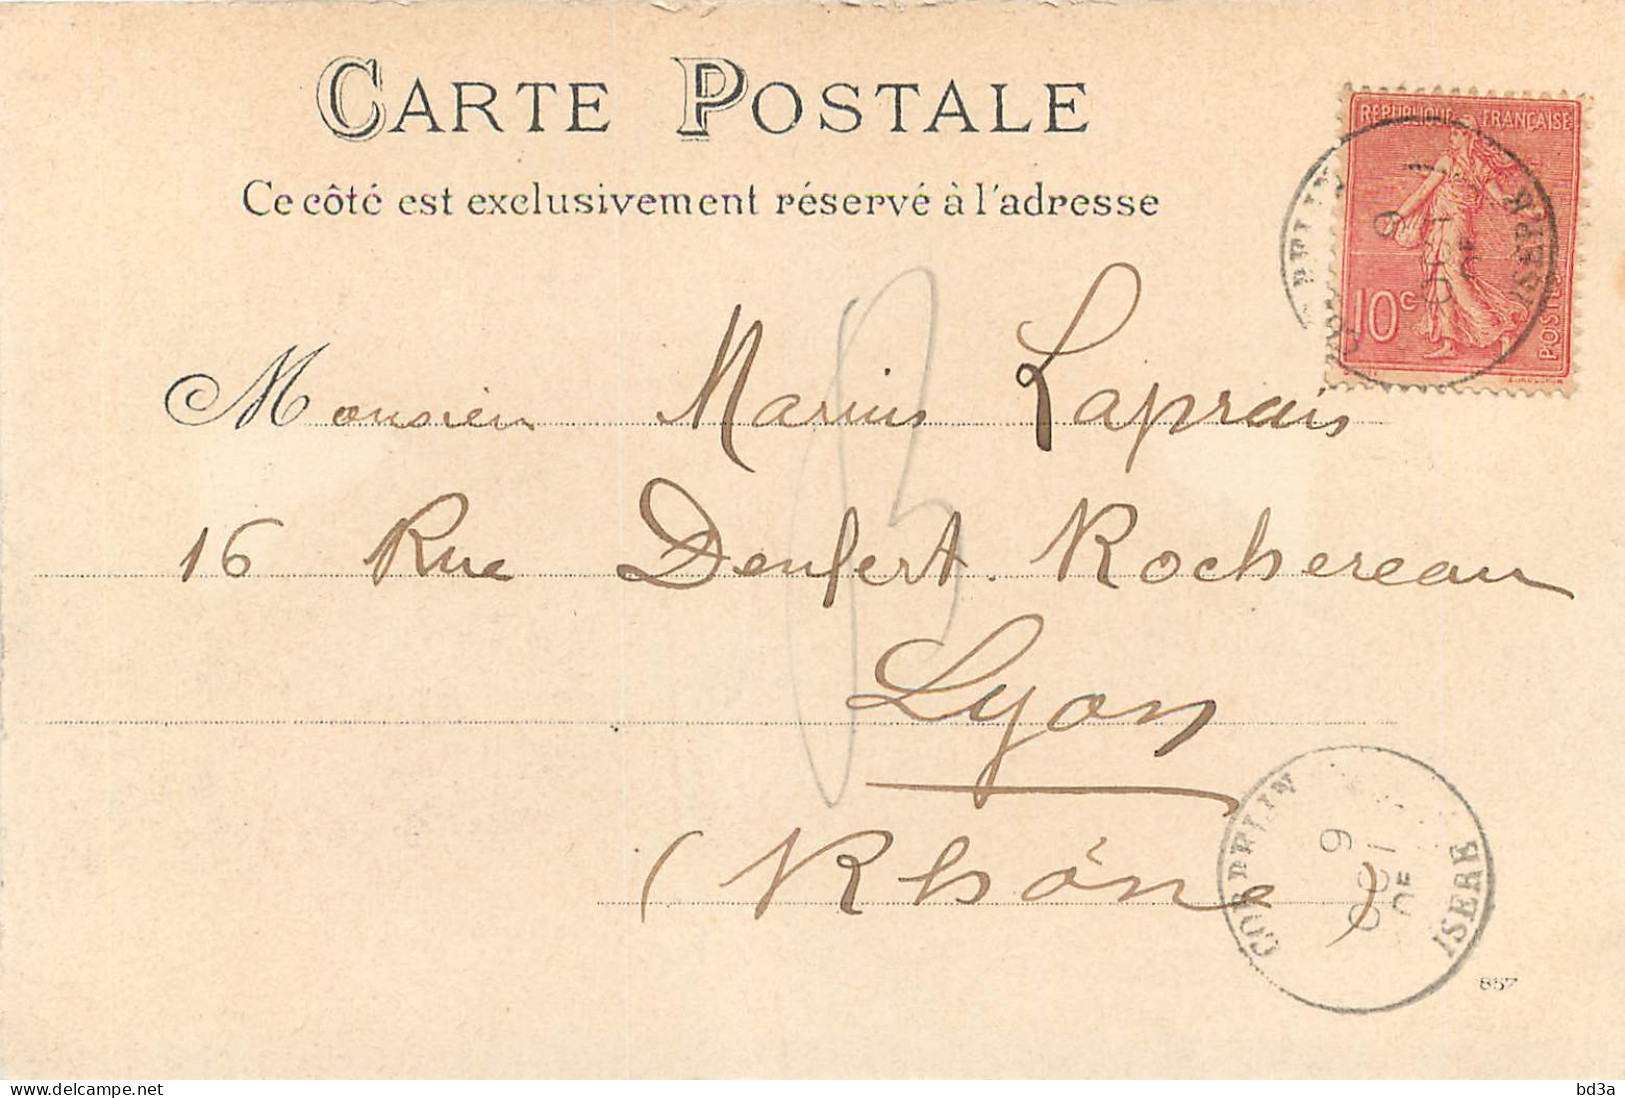 CARTE POSTALE
Ce côté est exclusivement réservé à l'adresse
REPUBLIQUE FRANÇAISE
10c
POSTES
Monsieur Marius Laprais
16 Rue Denfert. Rochereau
Lyon
(Rhône)
ISERE
9
OCT
857
delcampe.net
bd3a